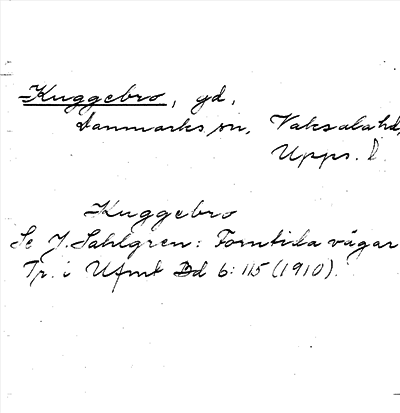 Kuggebro, gd,
Danmarks sn, Vaksala hd,
Upps. l
Kuggebro
Se J. Sahlgren: Forntida vägar
Tr. i Ufmt Bd 6: 115 (1910).